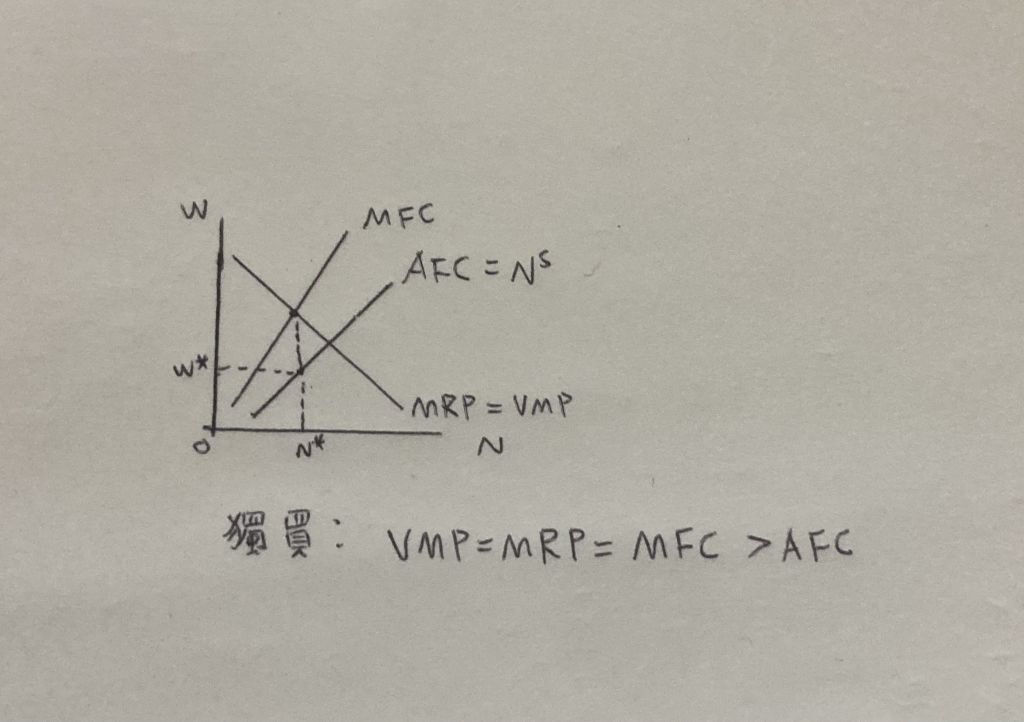 W
MFC
AFC = Nˢ
W*
MRP = VMP
O
N*
N
獨買: VMP=MRP= MFC >AFC